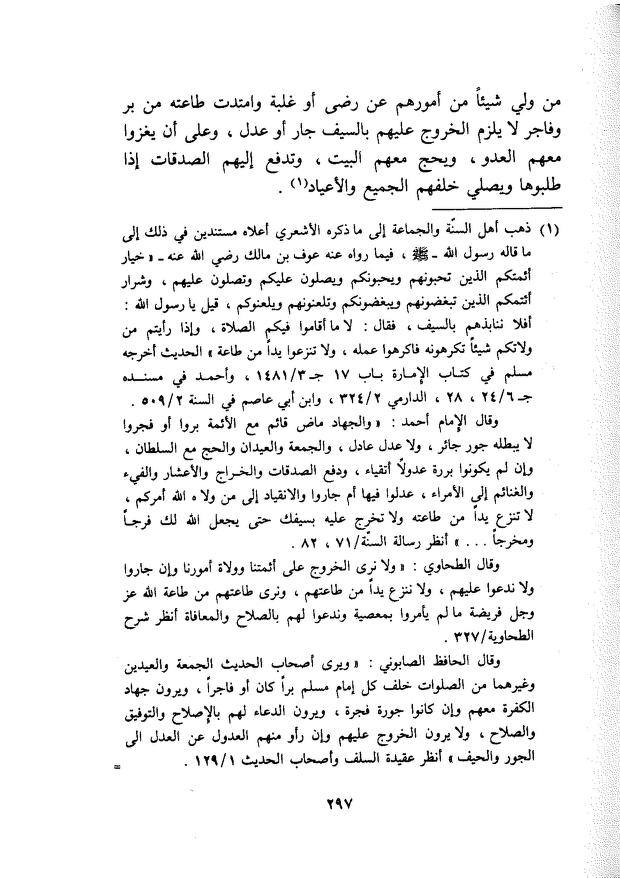 من ولي شيئاً من أمورهم عن رضى أو غلبة وامتدت طاعته من بر
وفاجر لا يلزم الخروج عليهم بالسيف جار أو عدل ، وعلى أن يغزوا
معهم العدو ، ويحج معهم البيت ، وتدفع إليهم الصدقات إذا
طلبوها ويصلي خلفهم الجميع والأعياد(١) .
(١) ذهب أهل السنّة والجماعة إلى ما ذكره الأشعري أعلاه مستندين في ذلك إلى
ما قاله رسول الله ـ ﷺ ، فيما رواه عنه عوف بن مالك رضي الله عنه ـ « خيار
أئمتكم الذين تحبونهم ويحبونكم ويصلون عليكم وتصلون عليهم ، وشرار
أئتمكم الذين تبغضونهم ويبغضونكم وتلعنونهم ويلعنوكم ، قيل يا رسول الله :
أفلا ننابذهم بالسيف ، فقال : لا ما أقاموا فيكم الصلاة ، وإذا رأيتم من
ولاتكم شيئاً تكرهونه فاكرهوا عمله ، ولا تنزعوا يداً من طاعة » الحديث أخرجه
مسلم في كتاب الإمارة باب ١٧ جـ ١٤٨١/٣ ، وأحمد في مسنده
جـ ٢٤/٦ ، ٢٨ ، الدارمي ٣٢٤/٢ ، وابن أبي عاصم في السنة ٥٠٩/٢ .
وقال الإمام أحمد : «والجهاد ماض قائم مع الأئمة بروا أو فجروا
لا يبطله جور جائر ، ولا عدل عادل ، والجمعة والعيدان والحج مع السلطان ،
وإن لم يكونوا بررة عدولاً أتقياء ، ودفع الصدقات والخراج والأعشار والفيء
والغنائم إلى الأمراء ، عدلوا فيها أم جاروا والانقياد إلى من ولاه الله أمركم ،
لا تنزع يداً من طاعته ولا تخرج عليه بسيفك حتى يجعل الله لك فرجـاً
ومخرجاً ... » أنظر رسالة السنّة/٧١ ، ٨٢ .
وقال الطحاوي : «ولا نرى الخروج على أئمتنا وولاة أمورنا وإن جاروا
ولا ندعوا عليهم ، ولا ننزع يداً من طاعتهم ، ونرى طاعتهم من طاعة الله عز
وجل فريضة ما لم يأمروا بمعصية وندعوا لهم بالصلاح والمعافاة أنظر شرح
الطحاوية/٣٢٧ .
وقال الحافظ الصابوني : «ويرى أصحاب الحديث الجمعة والعيدين
وغيرهما من الصلوات خلف كل إمام مسلم براً كان أو فاجراً ، ويرون جهاد
الكفرة معهم وإن كانوا جورة فجرة ، ويرون الدعاء لهم بالإصلاح والتوفيق
والصلاح ، ولا يرون الخروج عليهم وإن رأو منهم العدول عن العدل الى
الجور والحيف » أنظر عقيدة السلف وأصحاب الحديث ١٢٩/١ . =
٢٩٧